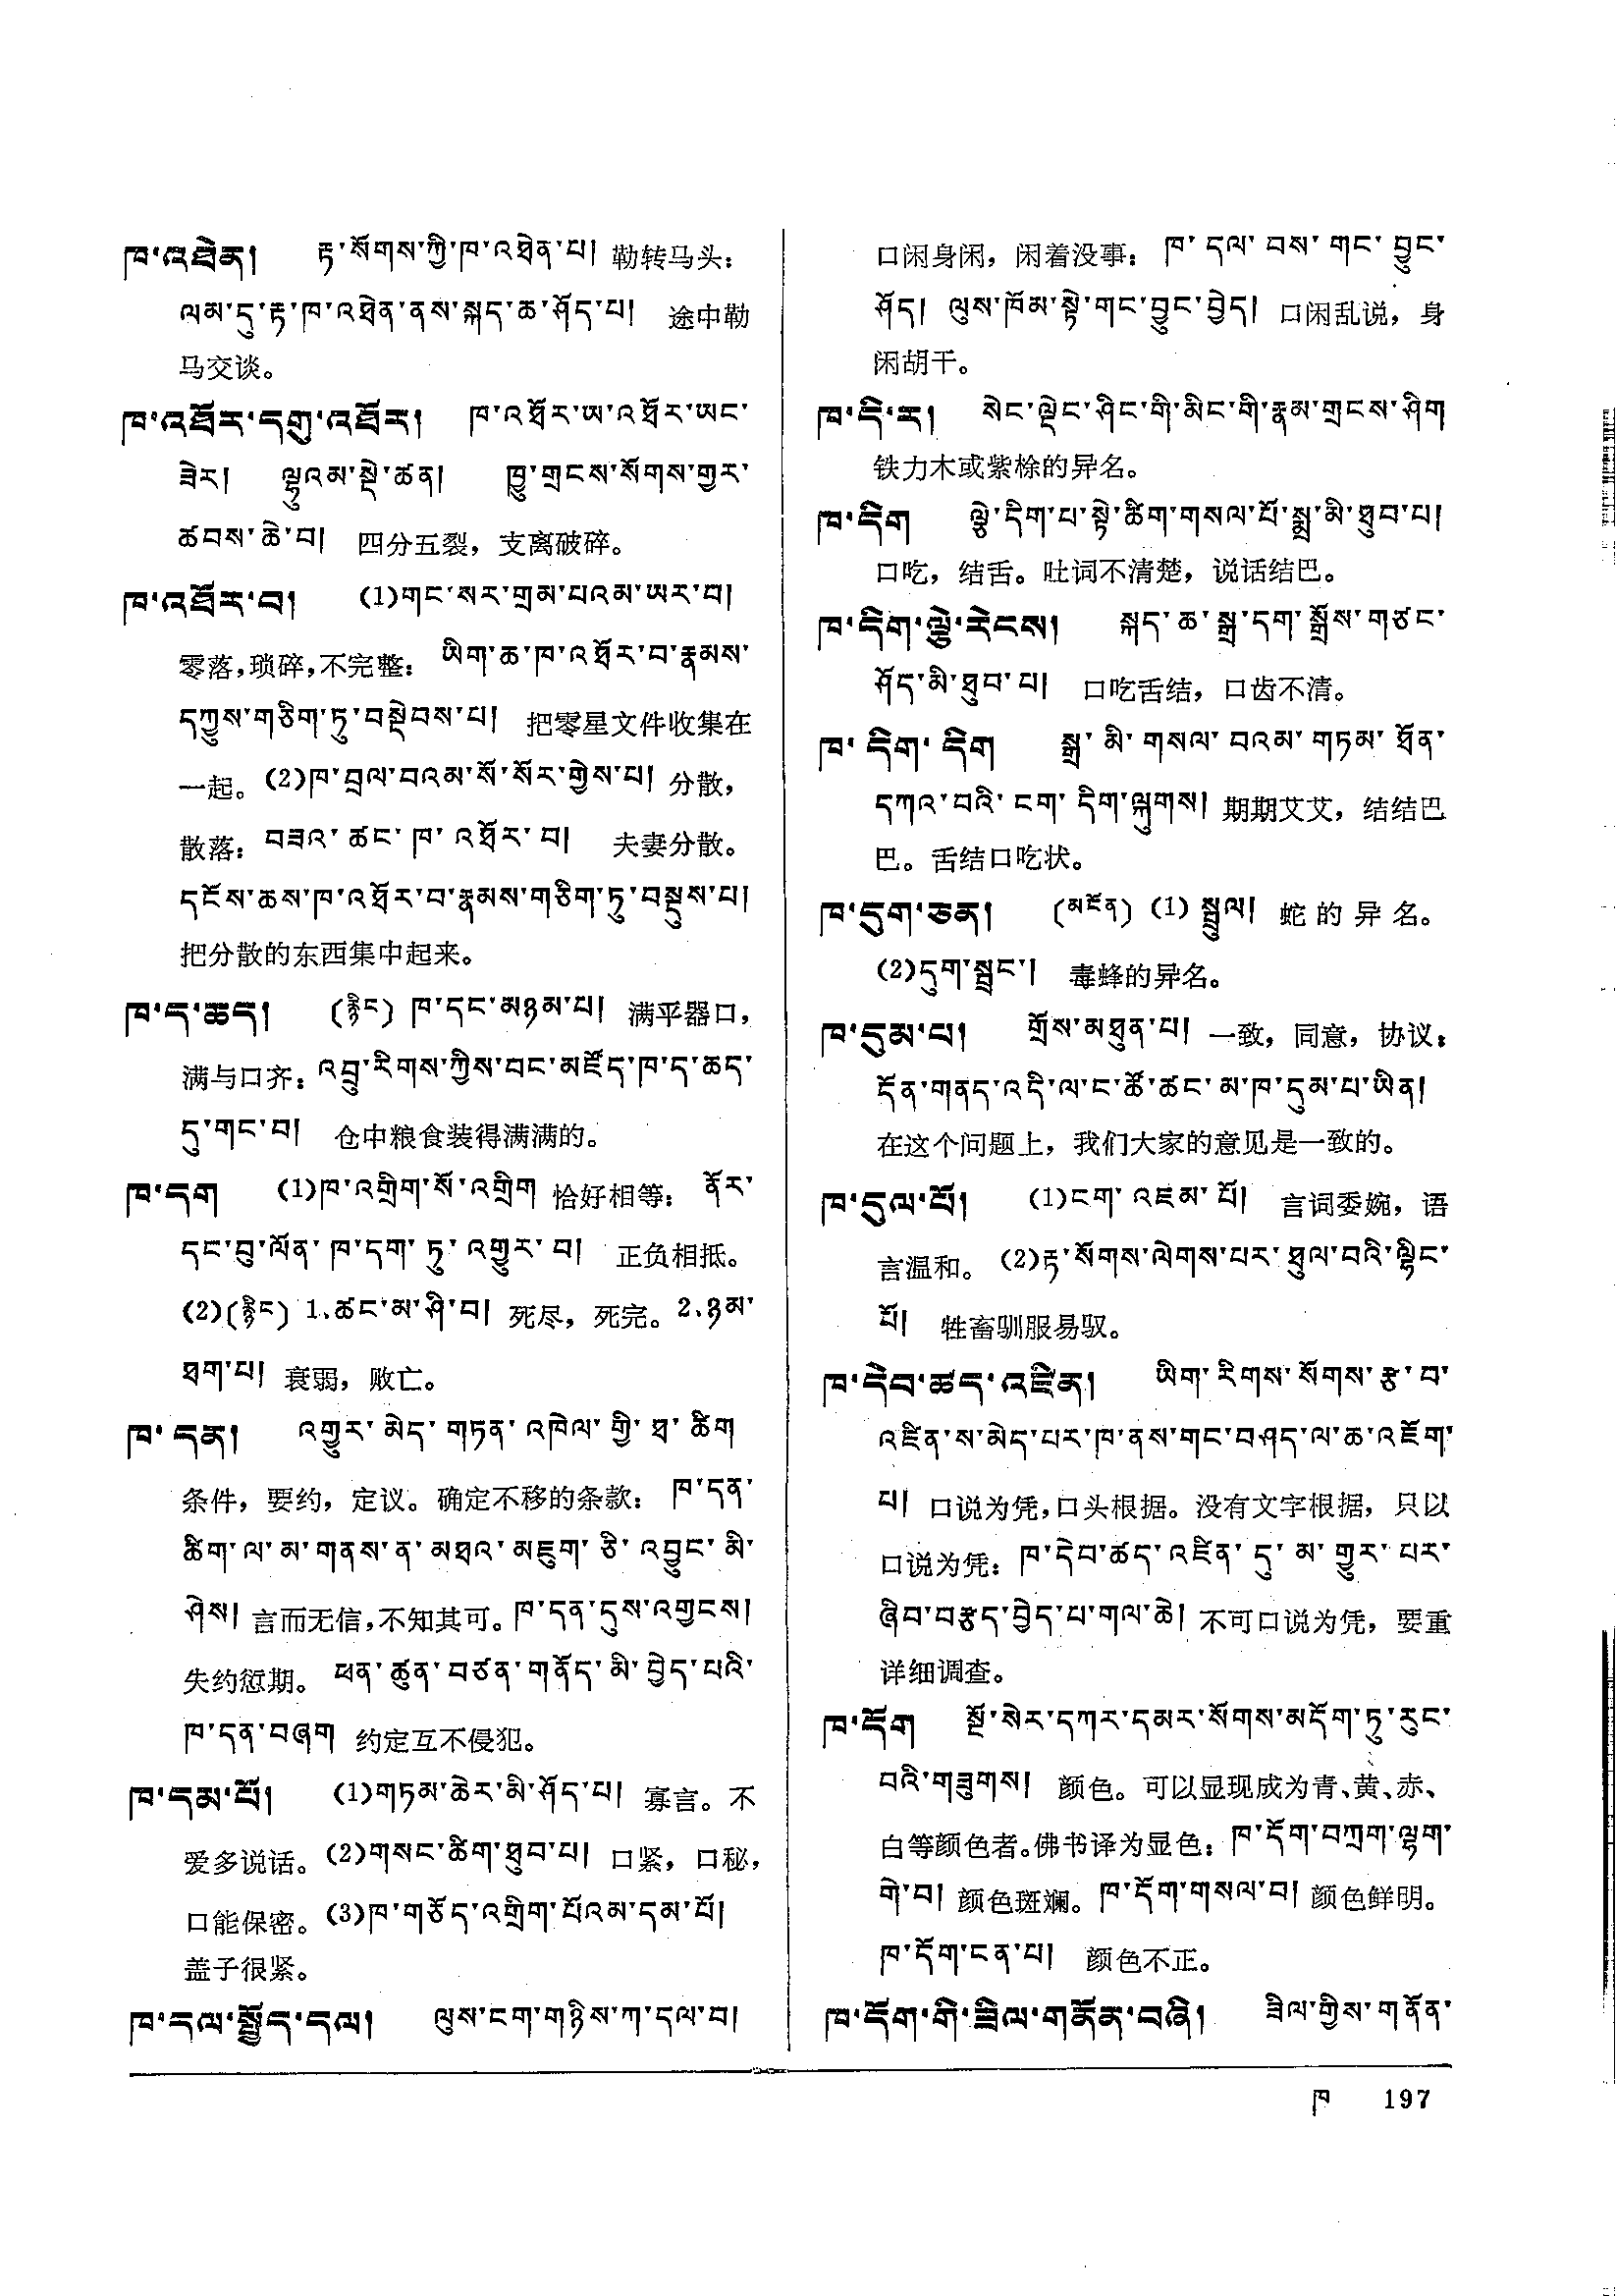 ཁ་འཐེན། རྟ་སོགས་ཀྱི་ཁ་འཐེན་པ། 勒转马头：
ལམ་དུ་རྟ་ཁ་འཐེན་ནས་སྐད་ཆ་ཤོད་པ། 途中勒
马交谈。
ཁ་འཐོར་དགུ་འཐོར། ཁ་འཐོར་ཨ་འཐོར་ཨང་
ཟེར། ལྷུའམ་སྡེ་ཚན། ཁྱུ་གྲངས་སོགས་གྱར་
ཚབས་ཆེ་བ། 四分五裂，支离破碎。
ཁ་འཐོར་བ། (1)གང་སར་གྲམ་པའམ་ཡར་བ།
零落,琐碎,不完整：ཡིག་ཆ་ཁ་འཐོར་བ་རྣམས་
དཀྱུས་གཅིག་ཏུ་བསྡེབས་པ། 把零星文件收集在
一起。(2)ཁ་བྲལ་བའམ་སོ་སོར་གྱེས་པ། 分散，
散落：བཟའ་ཚང་ཁ་འཐོར་བ། 夫妻分散。
དངོས་ཆས་ཁ་འཐོར་བ་རྣམས་གཅིག་ཏུ་བསྡུས་པ།
把分散的东西集中起来。
ཁ་ད་ཆད། (རྙིང) ཁ་དང་མཉམ་པ། 满平器口，
满与口齐：འབྲུ་རིགས་ཀྱིས་བང་མཛོད་ཁ་ད་ཆད་
དུ་གང་བ། 仓中粮食装得满满的。
ཁ་དག (1)ཁ་འགྲིག་སོ་འགྲིག 恰好相等：ནོར་
དང་བུ་ལོན་ཁ་དག་ཏུ་འགྱུར་བ། 正负相抵。
(2)(རྙིང) 1.ཚང་མ་ཤི་བ། 死尽，死完。2.ཉམ་
ཐག་པ། 衰弱，败亡。
ཁ་དན། འགྱུར་མེད་གཏན་འཁེལ་གྱི་ཐ་ཚིག
条件，要约，定议。确定不移的条款：ཁ་དན་
ཚིག་ལ་མ་གནས་ན་མཐའ་མཇུག་ཅི་འབྱུང་མི་
ཤེས། 言而无信,不知其可。ཁ་དན་དུས་འགྱངས།
失约愆期。ཕན་ཚུན་བཙན་གནོད་མི་བྱེད་པའི་
ཁ་དན་བཞག 约定互不侵犯。
ཁ་དམ་པོ། (1)གཏམ་ཆེར་མི་ཤོད་པ། 寡言。不
爱多说话。(2)གསང་ཚིག་ཐུབ་པ། 口紧，口秘，
口能保密。(3)ཁ་གཅོད་འགྲིག་པོའམ་དམ་པོ།
盖子很紧。
ཁ་དལ་སྤྱོད་དལ། ལུས་ངག་གཉིས་ཀ་དལ་བ།
口闲身闲，闲着没事：ཁ་དལ་བས་གང་བྱུང་
ཤོད། ལུས་ཁོམ་སྟེ་གང་བྱུང་བྱེད། 口闲乱说，身
闲胡干。
ཁ་དི་ར། སེང་ལྡེང་ཤིང་གི་མིང་གི་རྣམ་གྲངས་ཤིག
铁力木或紫桧的异名。
ཁ་དིག ལྕེ་དིག་པ་སྟེ་ཚིག་གསལ་པོ་སྨྲ་མི་ཐུབ་པ།
口吃，结舌。吐词不清楚，说话结巴。
ཁ་དིག་ལྕེ་རེངས། སྐད་ཆ་སྒྲ་དག་སྒྲོས་གཙང་
ཤོད་མི་ཐུབ་པ། 口吃舌结，口齿不清。
ཁ་དིག་དིག སྒྲ་མི་གསལ་བའམ་གཏམ་ཐོན་
དཀའ་བའི་ངག་དིག་ལྐུགས། 期期艾艾，结结巴
巴。舌结口吃状。
ཁ་དུག་ཅན། (མངོན) (1)སྦྲུལ། 蛇的异名。
(2)དུག་སྦྲང་། 毒蜂的异名。
ཁ་དུམ་པ། གྲོས་མཐུན་པ། 一致，同意，协议：
དོན་གནད་འདི་ལ་ང་ཚོ་ཚང་མ་ཁ་དུམ་པ་ཡིན།
在这个问题上，我们大家的意见是一致的。
ཁ་དུལ་པོ། (1)ངག་འཇམ་པོ། 言词委婉，语
言温和。(2)རྟ་སོགས་ལེགས་པར་ཐུལ་བའི་ལྷིང་
པོ། 牲畜驯服易驭。
ཁ་དེབ་ཚད་འཛིན། ཡིག་རིགས་སོགས་རྩ་བ་
འཛིན་ས་མེད་པར་ཁ་ནས་གང་བཤད་ལ་ཆ་འཇོག་
པ། 口说为凭,口头根据。没有文字根据，只以
口说为凭：ཁ་དེབ་ཚད་འཛིན་དུ་མ་གྱུར་པར་
ཞིབ་བརྩད་བྱེད་པ་གལ་ཆེ། 不可口说为凭，要重
详细调查。
ཁ་དོག སྔོ་སེར་དཀར་དམར་སོགས་མདོག་ཏུ་རུང་
བའི་གཟུགས། 颜色。可以显现成为青、黄、赤、
白等颜色者。佛书译为显色：ཁ་དོག་བཀྲག་ལྷག་
གེ་བ། 颜色斑斓。ཁ་དོག་གསལ་བ། 颜色鲜明。
ཁ་དོག་ངན་པ། 颜色不正。
ཁ་དོག་གི་ཟིལ་གནོན་བཞི། ཟིལ་གྱིས་གནོན་
ཁ 197